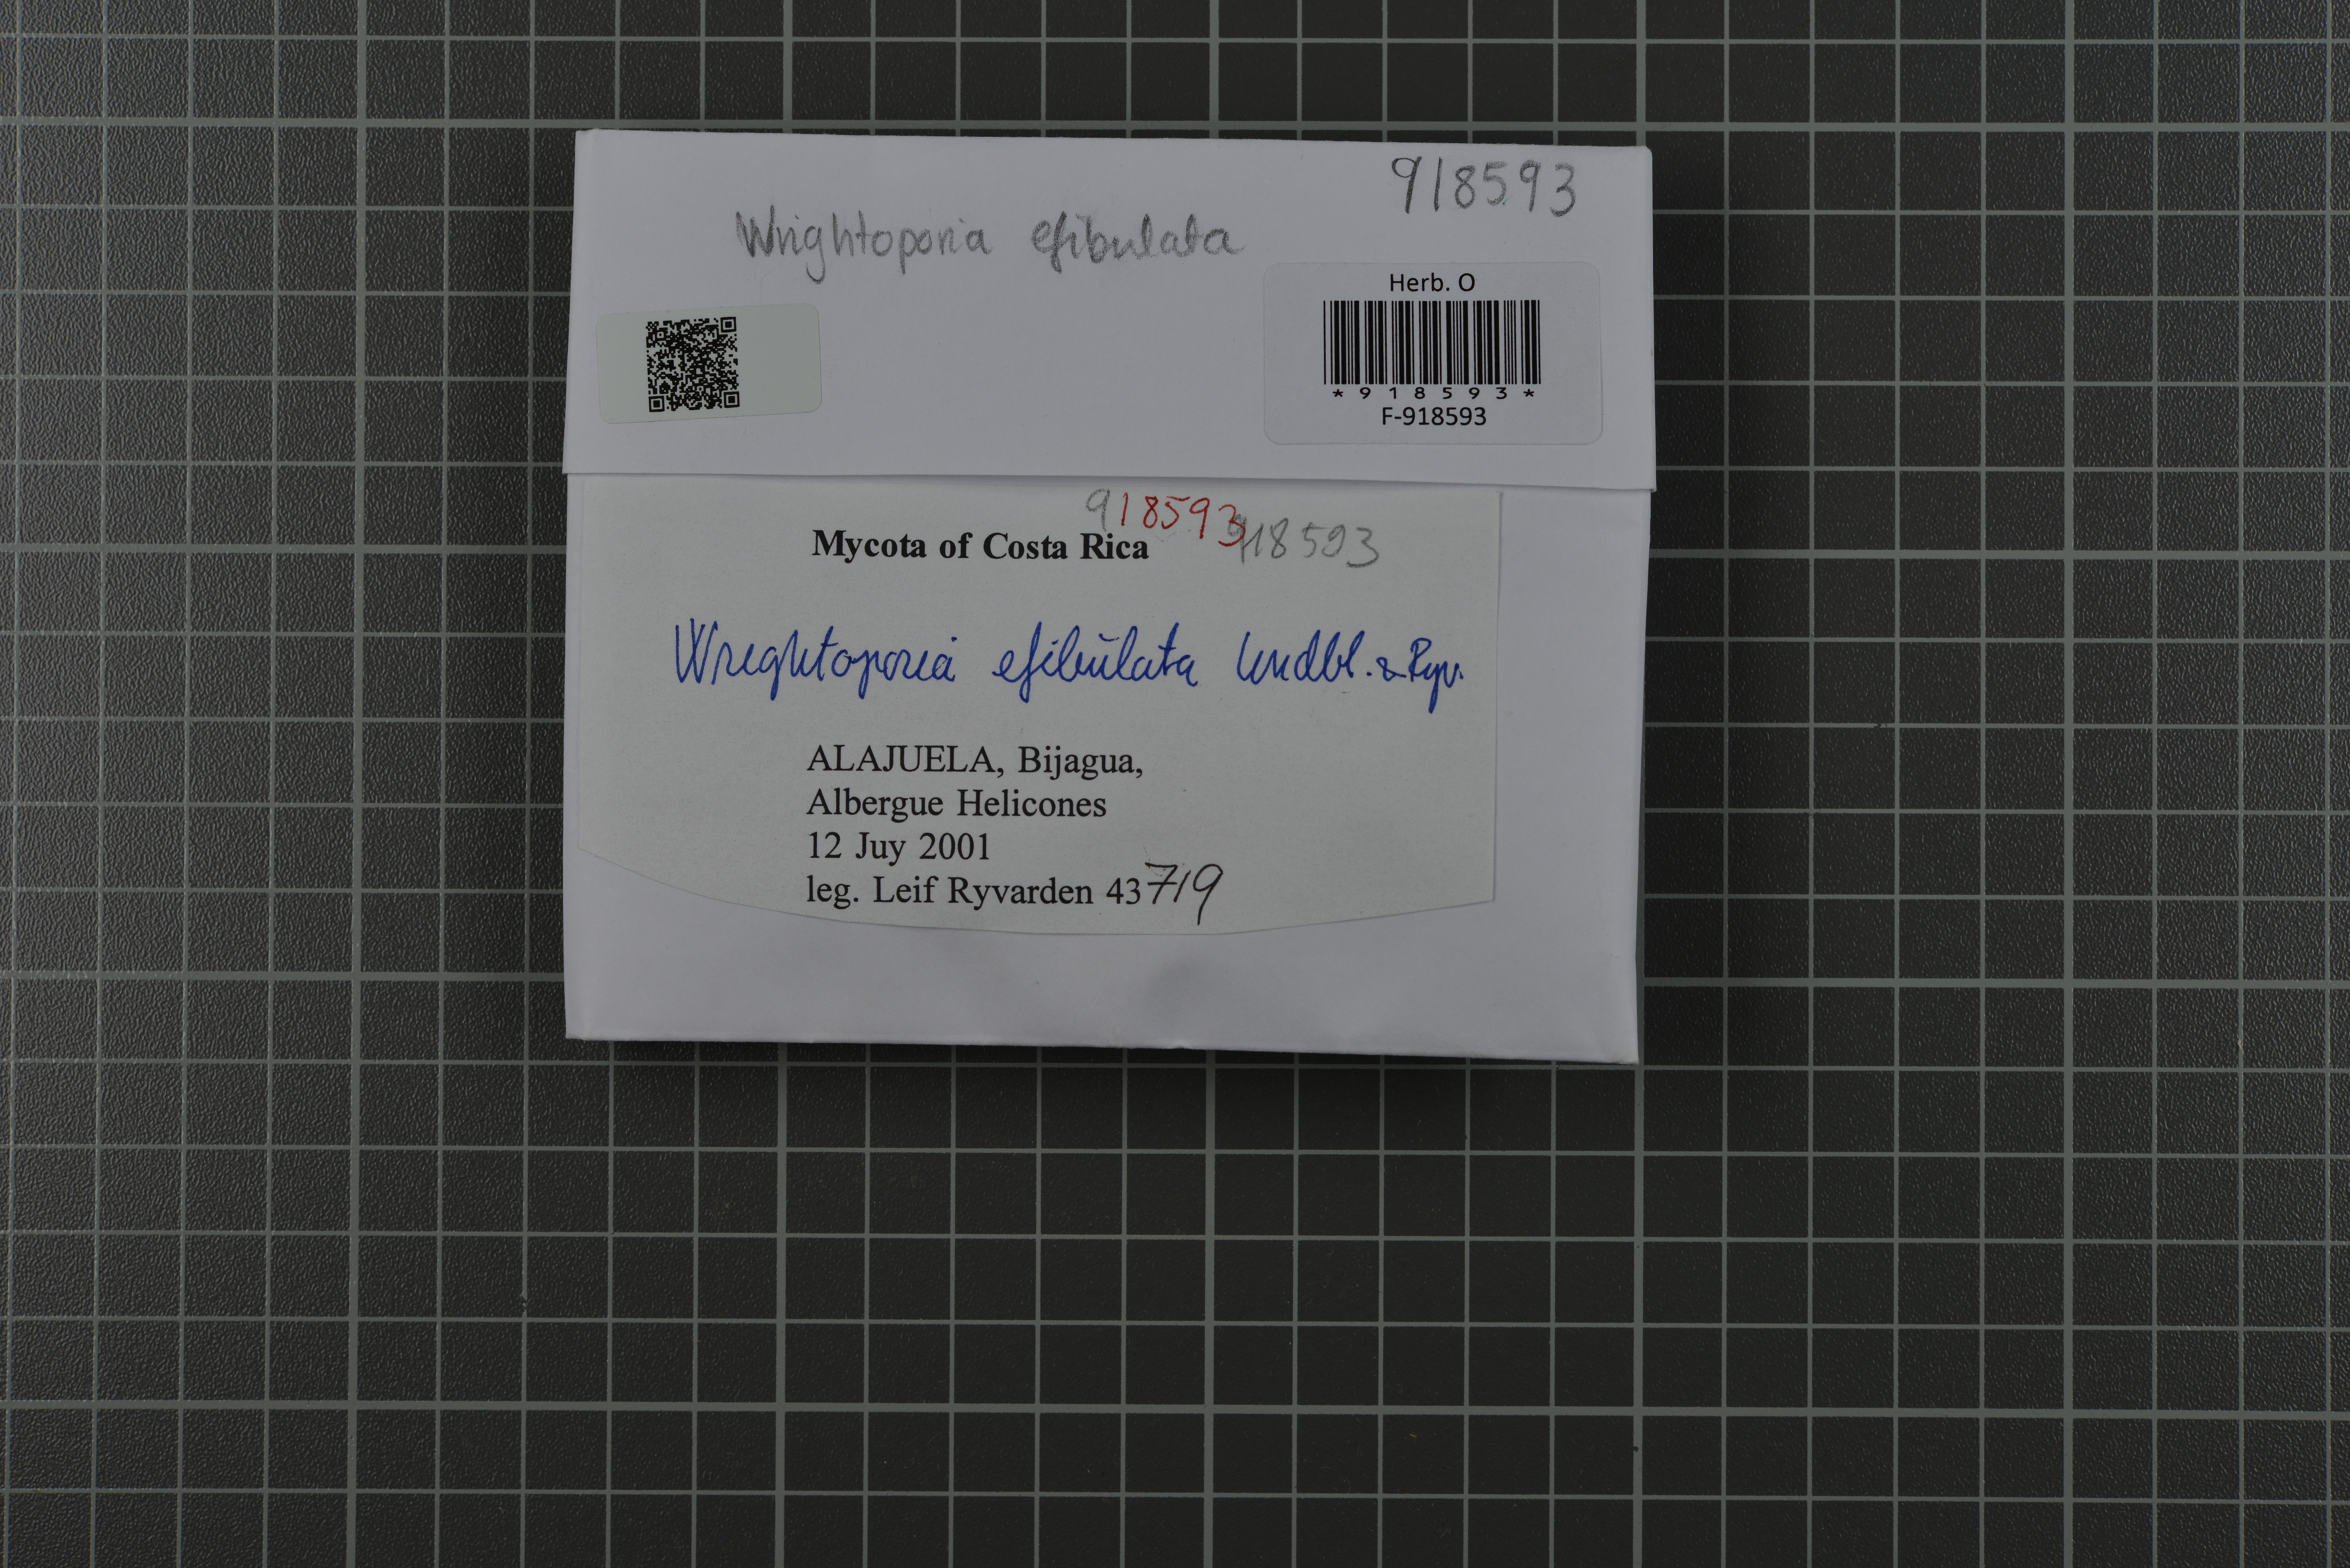 918593
Wrightoporia efibulata
Herb. O
*918593*
F-918593
918593
918593
Mycota of Costa Rica
Wrightoporia efibulata Lindbl. & Ryv.
ALAJUELA, Bijagua,
Albergue Helicones
12 Juy 2001
leg. Leif Ryvarden 43719